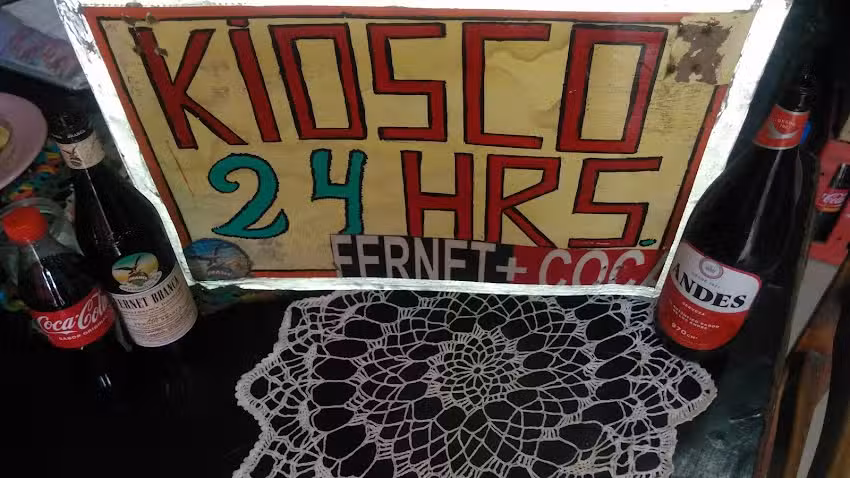 KIOSCO
24 HRS.
FERNET + COC
Coca-Cola
SABOR ORIGINAL
FERNET BRANCA
ANDES
CERVEZA
970 cm³